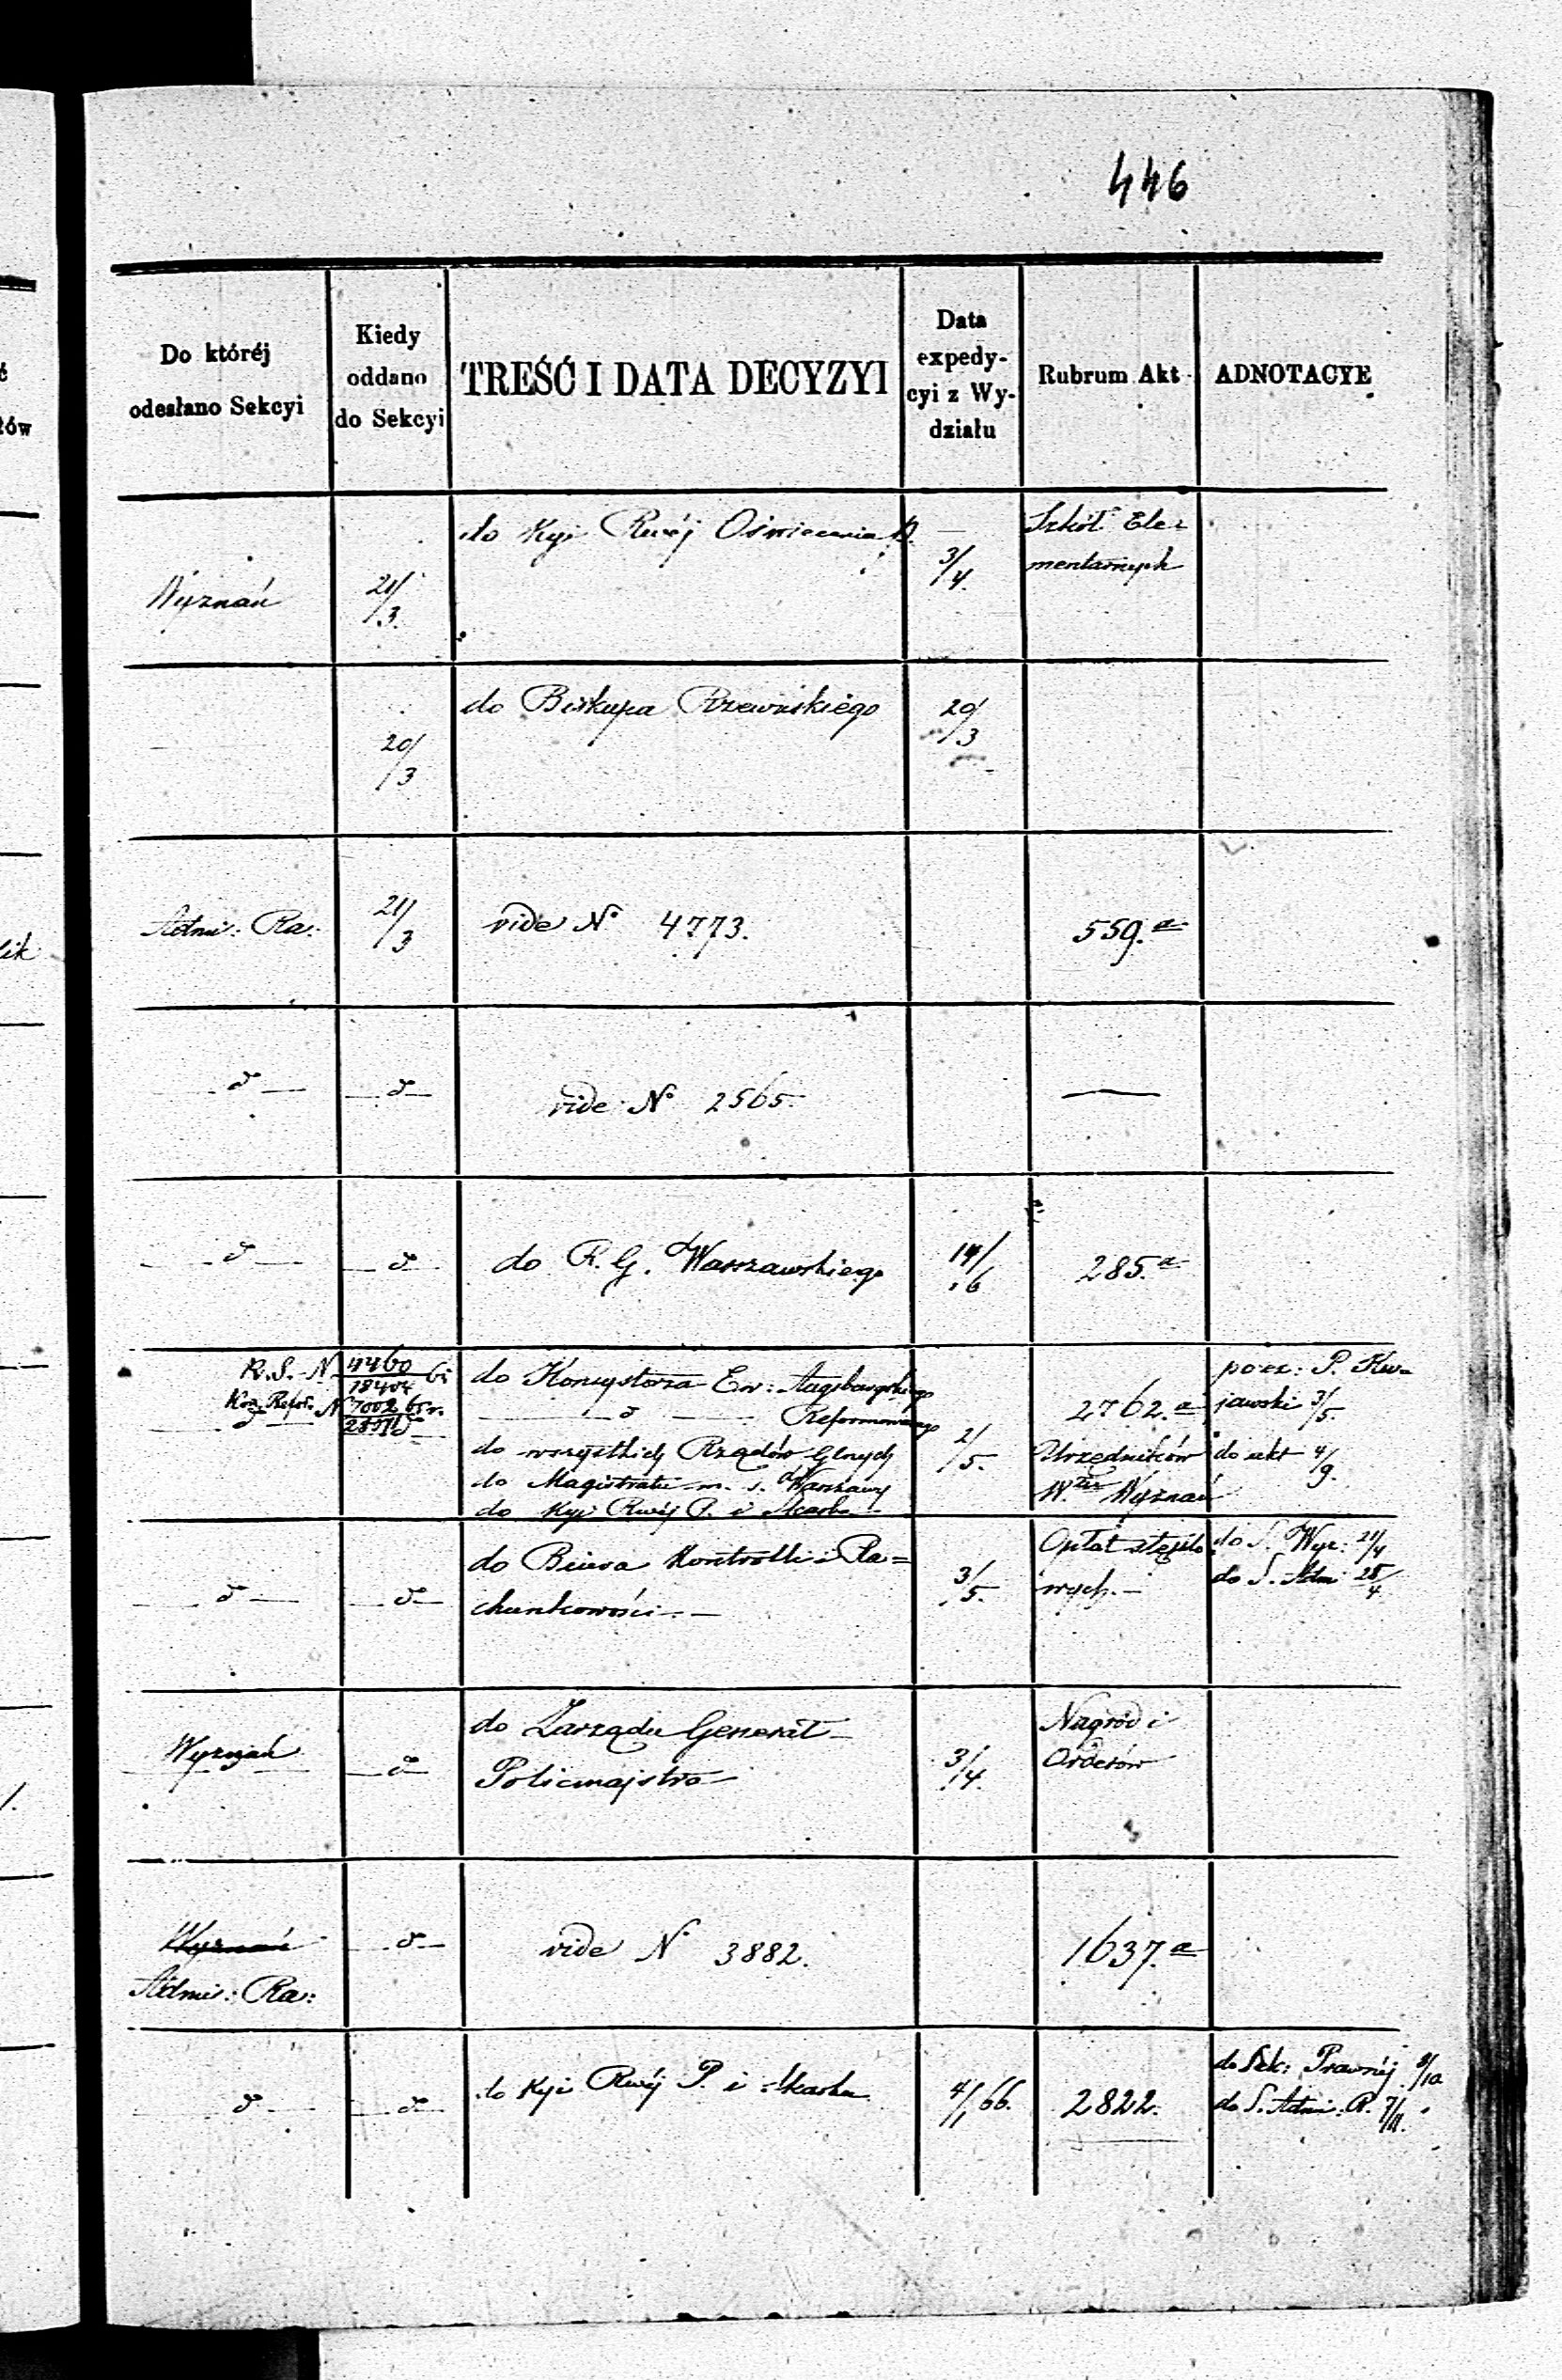 446
Do któréj odesłano Sekcyi
Kiedy oddano do Sekcyi
TREŚĆ I DATA DECYZYI
Data expedycyi z Wydziału
Rubrum Akt
ADNOTACYE
Wyznań
21/3.
do Kyi Rwéj Oświecenia P.
3/4.
Szkół Ele-
mentarnych
20/3
do Biskupa Rzewuskiego
20/3
Admi: Ra:
21/3
vide No 4773.
559.a
— d —
— d —
vide No 2565.
—
— d —
— d —
do R. G. Warszawskiego
14/6
285.a
R. S. N 4460/18404 65
Kon. Refor. N 7002/28516 65 r.
— d —
do Konsystorza Ew: Augsburgskiego
— d — Reformowanego
do wszystkich Rządów Glnych
do Magistratu m. s. Warszawy
do Kyi Rwéj P. i Skarbu
2/5.
2762.a
Urzędników
W. Wyznań
pozz: P. Ku-
jawski 3/5.
do akt 4/9.
— d —
— d —
do Biura Kontrolli i Ra=
chunkowości —
3/5.
Opłat stęplo
wych. —
do S. Wyz: 21/4
do S. Adm 25/4
Wyznań
— d —
do Zarządu Generał
Policmajstra
3/4.
Nagród i
Orderów
Wyznań
Admi: Ra:
— d —
vide No 3882.
1637.a
— d —
— d —
do Kyi Rwéj P. i Skarbu
4/1 66.
2822.
do Sek: Prawnéj 8/10
do S. Admi: R. 7/11.